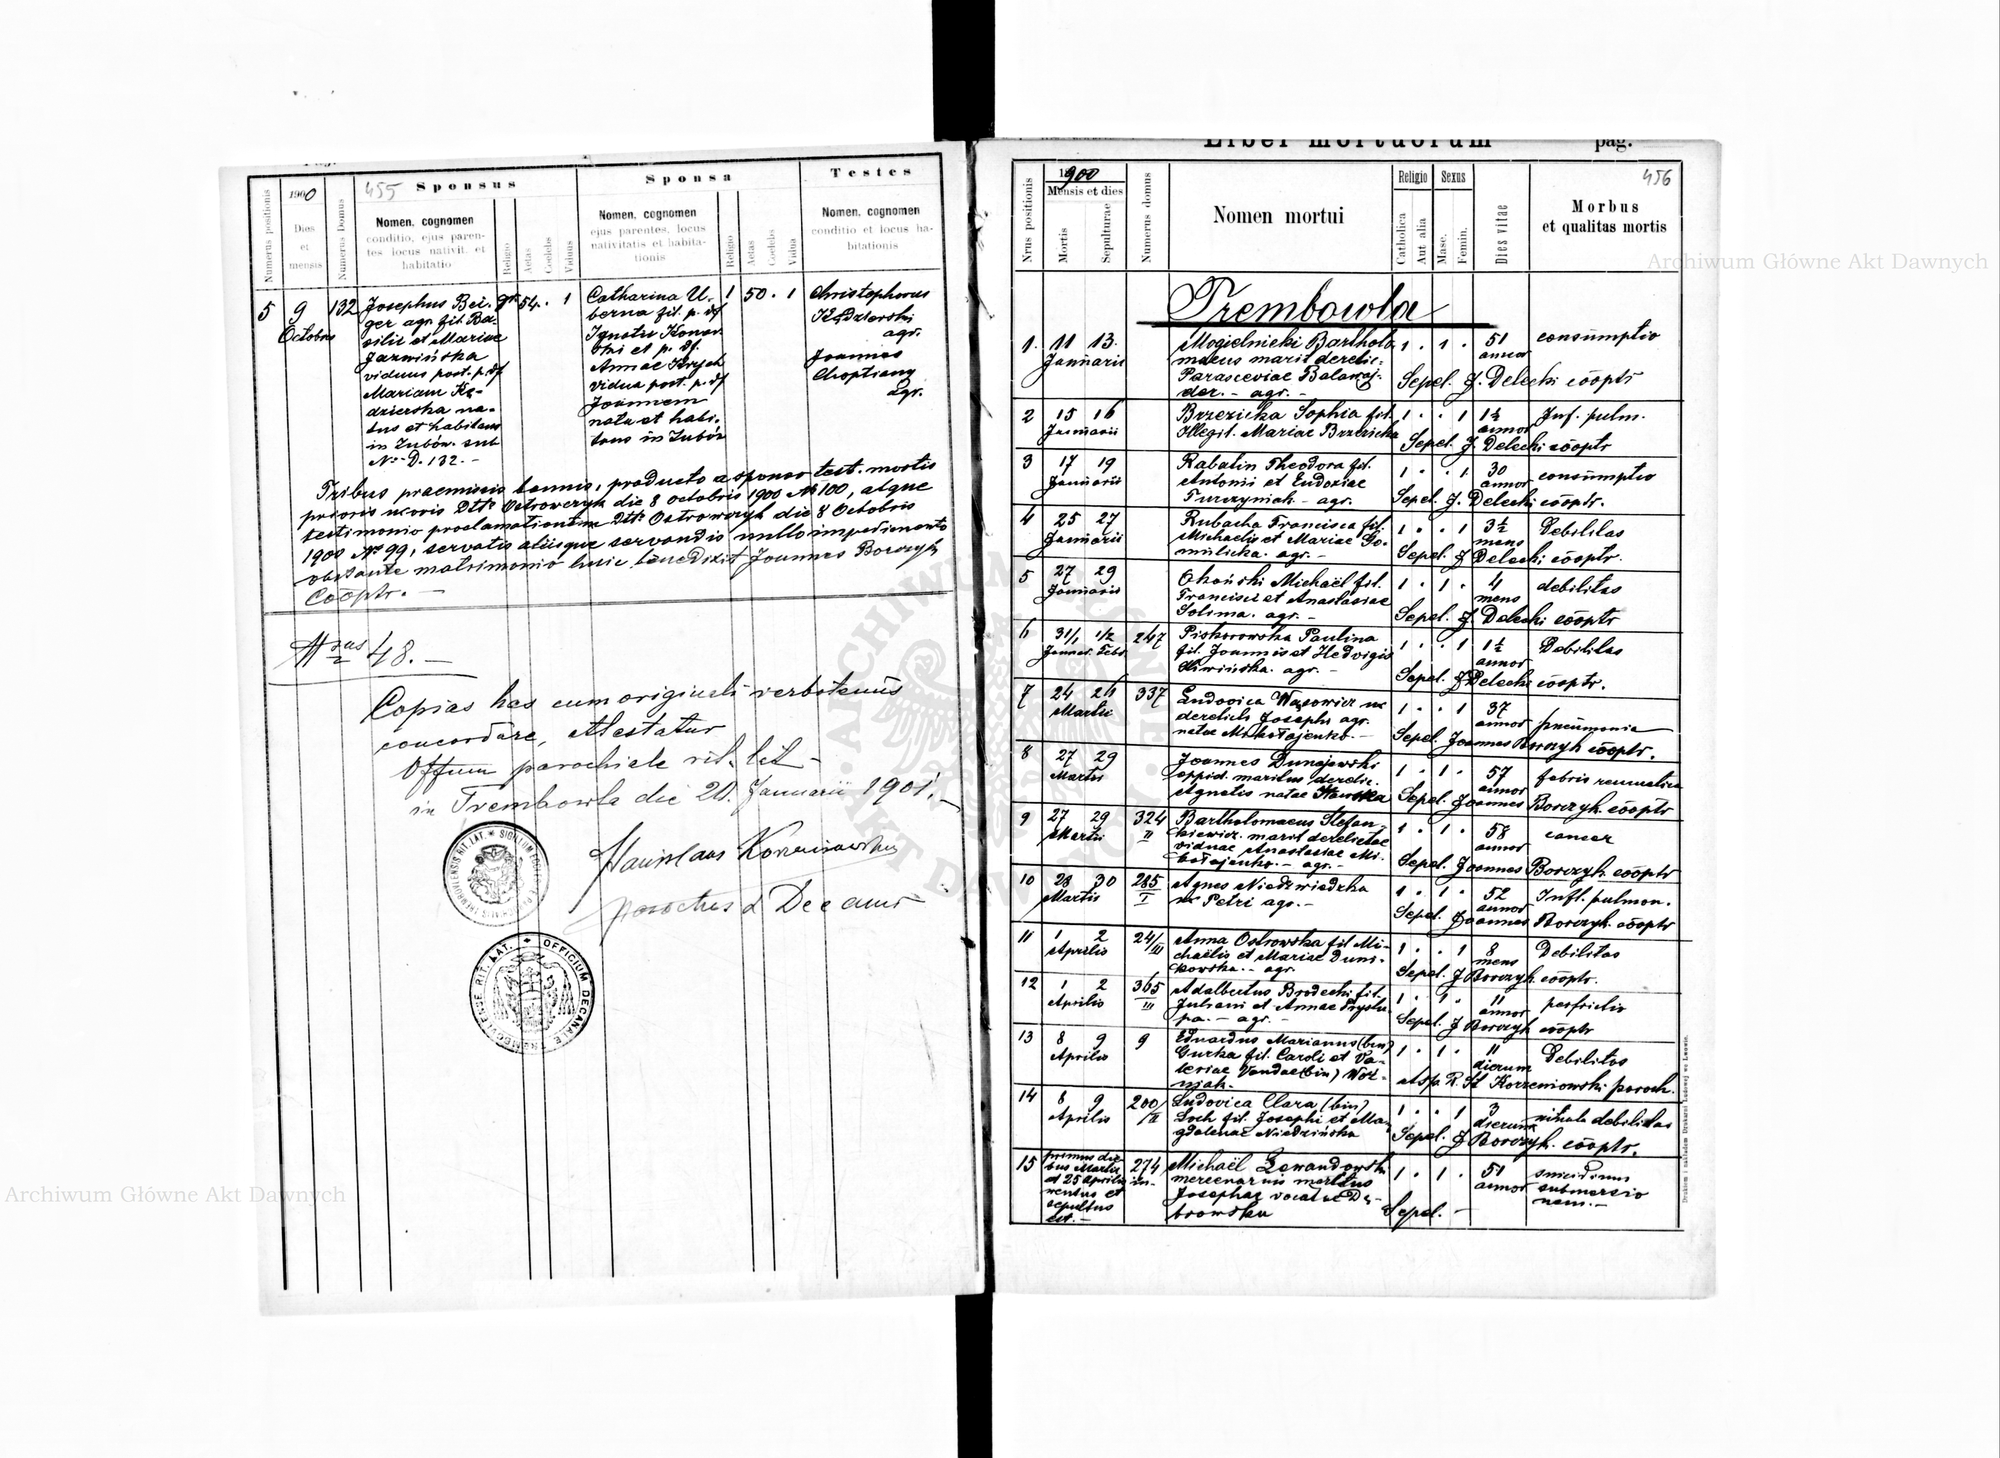 455
1900
Numerus positionis
Dies
et
mensis
Numerus Domus
Sponsus
Nomen, cognomen
conditio, ejus paren-
tes locus nativit. et
habitatio
Religio
Aetas
Coelebs
Viduus
Sponsa
Nomen, cognomen
ejus parentes, locus
nativitatis et habita-
tionis
Religio
Aetas
Coelebs
Vidua
Testes
Nomen, cognomen
conditio et locus ha-
bitationis
5
9
Octobris
132
Josephus Bei-
ger agr. fil. Ba-
silii et Mariae
Jarwińska
viduus post. p. df
Mariam Kę-
dzierska na-
tus et habitans
in Zubów. sub
No D. 132. -
54. 1
Catharina U-
berna fil. p. df
Ignatii Konar
ski et p. df.
Annae Krych
vidua post. p. df
Joannem
nata et habi-
tans in Zubów
1 50. 1
Christophorus
Kędzierski
agr.
Joannes
Choptiany
agr.
Tribus praemissis bannis, producto a sponso test. mortis
prioris uxoris Dtto Ostrowczyk die 8 octobris 1900 No 100, atque
testimonio proclamationum Dtto Ostrowczyk die 8 Octobris
1900 No 99, servatis aliisque servandis nullo impedimento
obstante matrimonio huic benedixit Joannes Borczyk
Cooptr. -
48. -
Copias has cum originali verbotenus
concordare, attestatur
Offium parochiale rit. lat -
in Trembowla die 20. Januarii 1901. -
Stanislaus Korzeniowski
parochus & Decanus
OFFICIUM DECANALE TREMBOVLENSE RIT. LAT.
Liber mortuorum
pag.
456
Nrus positionis
1900
Mensis et dies
Mortis
Sepulturae
Numerus domus
Nomen mortui
Religio
Catholica
Aut alia
Sexus
Masc.
Femin.
Dies vitae
Morbus
et qualitas mortis
Trembowla
1. 11 13. Mogielnicki Bartholo- 1 . 1 . 51 consumptio
Januarii maeus marit derelic. annor
Parasceviae Balawaj-
der. - agr. - Sepel. J. Delecki cooptr
2 15 16 Brzezicka Sophia fil. 1 . . 1 1½ Inf. pulm.
Januarii Illegit. Mariae Brzezicka annor
Sepel. J. Delecki cooptr
3 17 19 Rabatin Theodora fil. 1 . . 1 30 consumptio
Januarii Antonii et Eudoxiae annor
Turczyniak - agr. Sepel. J. Delecki cooptr.
4 25 27 Rubacha Francisca fil. 1 . . 1 3½ Debilitas
Januarii Michaelis et Mariae Go- mens
mulicka. agr. - Sepel. J Delecki cooptr.
5 27 29 Okoński Michaël fil. 1 . 1 . 4 debilitas
Januarii Francisci et Anastasiae mens
Solima. agr. - Sepel. J. Delecki cooptr
6 31/1 1/2 247 Piskorowska Paulina 1 . . 1 1½ Debilitas
Januar. Febr. fil. Joannis et Hedvigis annor
Oliwińska. agr. - Sepel. J Delecki cooptr.
7 24 26 337 Ludovica Wąsowicz ux 1 . . 1 37 pneumonia
Martii derelicta Josephi agr. annor
natae Mikołajenko. - Sepel. Joannes Borczyk cooptr.
8 27 29 Joannes Dunajewski 1 . 1 . 57 febris reumatica
Martii oppid. maritus derelic. annor
Agnetis natae Sepel. Joannes Borczyk. cooptr
9 27 29 324 Bartholomaeus Stefan- 1 . 1 . 58 cancer
Martii II kiewicz. marit derelictae annor
viduae Anastasiae Mi-
kołajenko. - agr. - Sepel. Joannes Borczyk. cooptr
10 28 30 285 Agnes Niedzwiedzka 1 . 1 . 52 Infl. pulmon.
Martii I ux Petri agr. - annor
Sepel. Joannes Borczyk. cooptr
11 1 2 24/III Anna Ostrowska fil Mi- 1 . . 1 8 Debilitas
Aprilis chaëlis et Mariae Duni- mens
kowska. - agr. Sepel. J Borczyk. cooptr.
12 1 2 365 Adalbertus Brodecki fil. 1 . 1 . 11 perfrictio
Aprilis III Juliani et Annae Pryslu- annor
pa. - agr. - Sepel. J Borczyk cooptr
13 8 9 9 Eduardus Marianus (bin) 1 . 1 . 11 Debilitas
Aprilis Gurka fil. Caroli et Va- dierum
leriae Vandae (bin) Woź-
niak. - R. St Korzeniowski paroch.
14 8 9 200/II Ludovica Clara (bin) 1 . . 1 3 debilitas
Aprilis Loch fil. Josephi et Ma- dierum
gdalenae Niedzińska Sepel. J Borczyk. cooptr.
15 primis die- 274 Michaël Lewandowski 1 . 1 . 51 suicidium
bus Martii mercenarius maritus annor submersio
et 25 Aprilis Josephae vocatae Dą-
ventus et browska Sepel. -
sepultus
est. -
Archiwum Główne Akt Dawnych
Archiwum Główne Akt Dawnych
ARCHIWUM GŁÓWNE AKT DAWNYCH